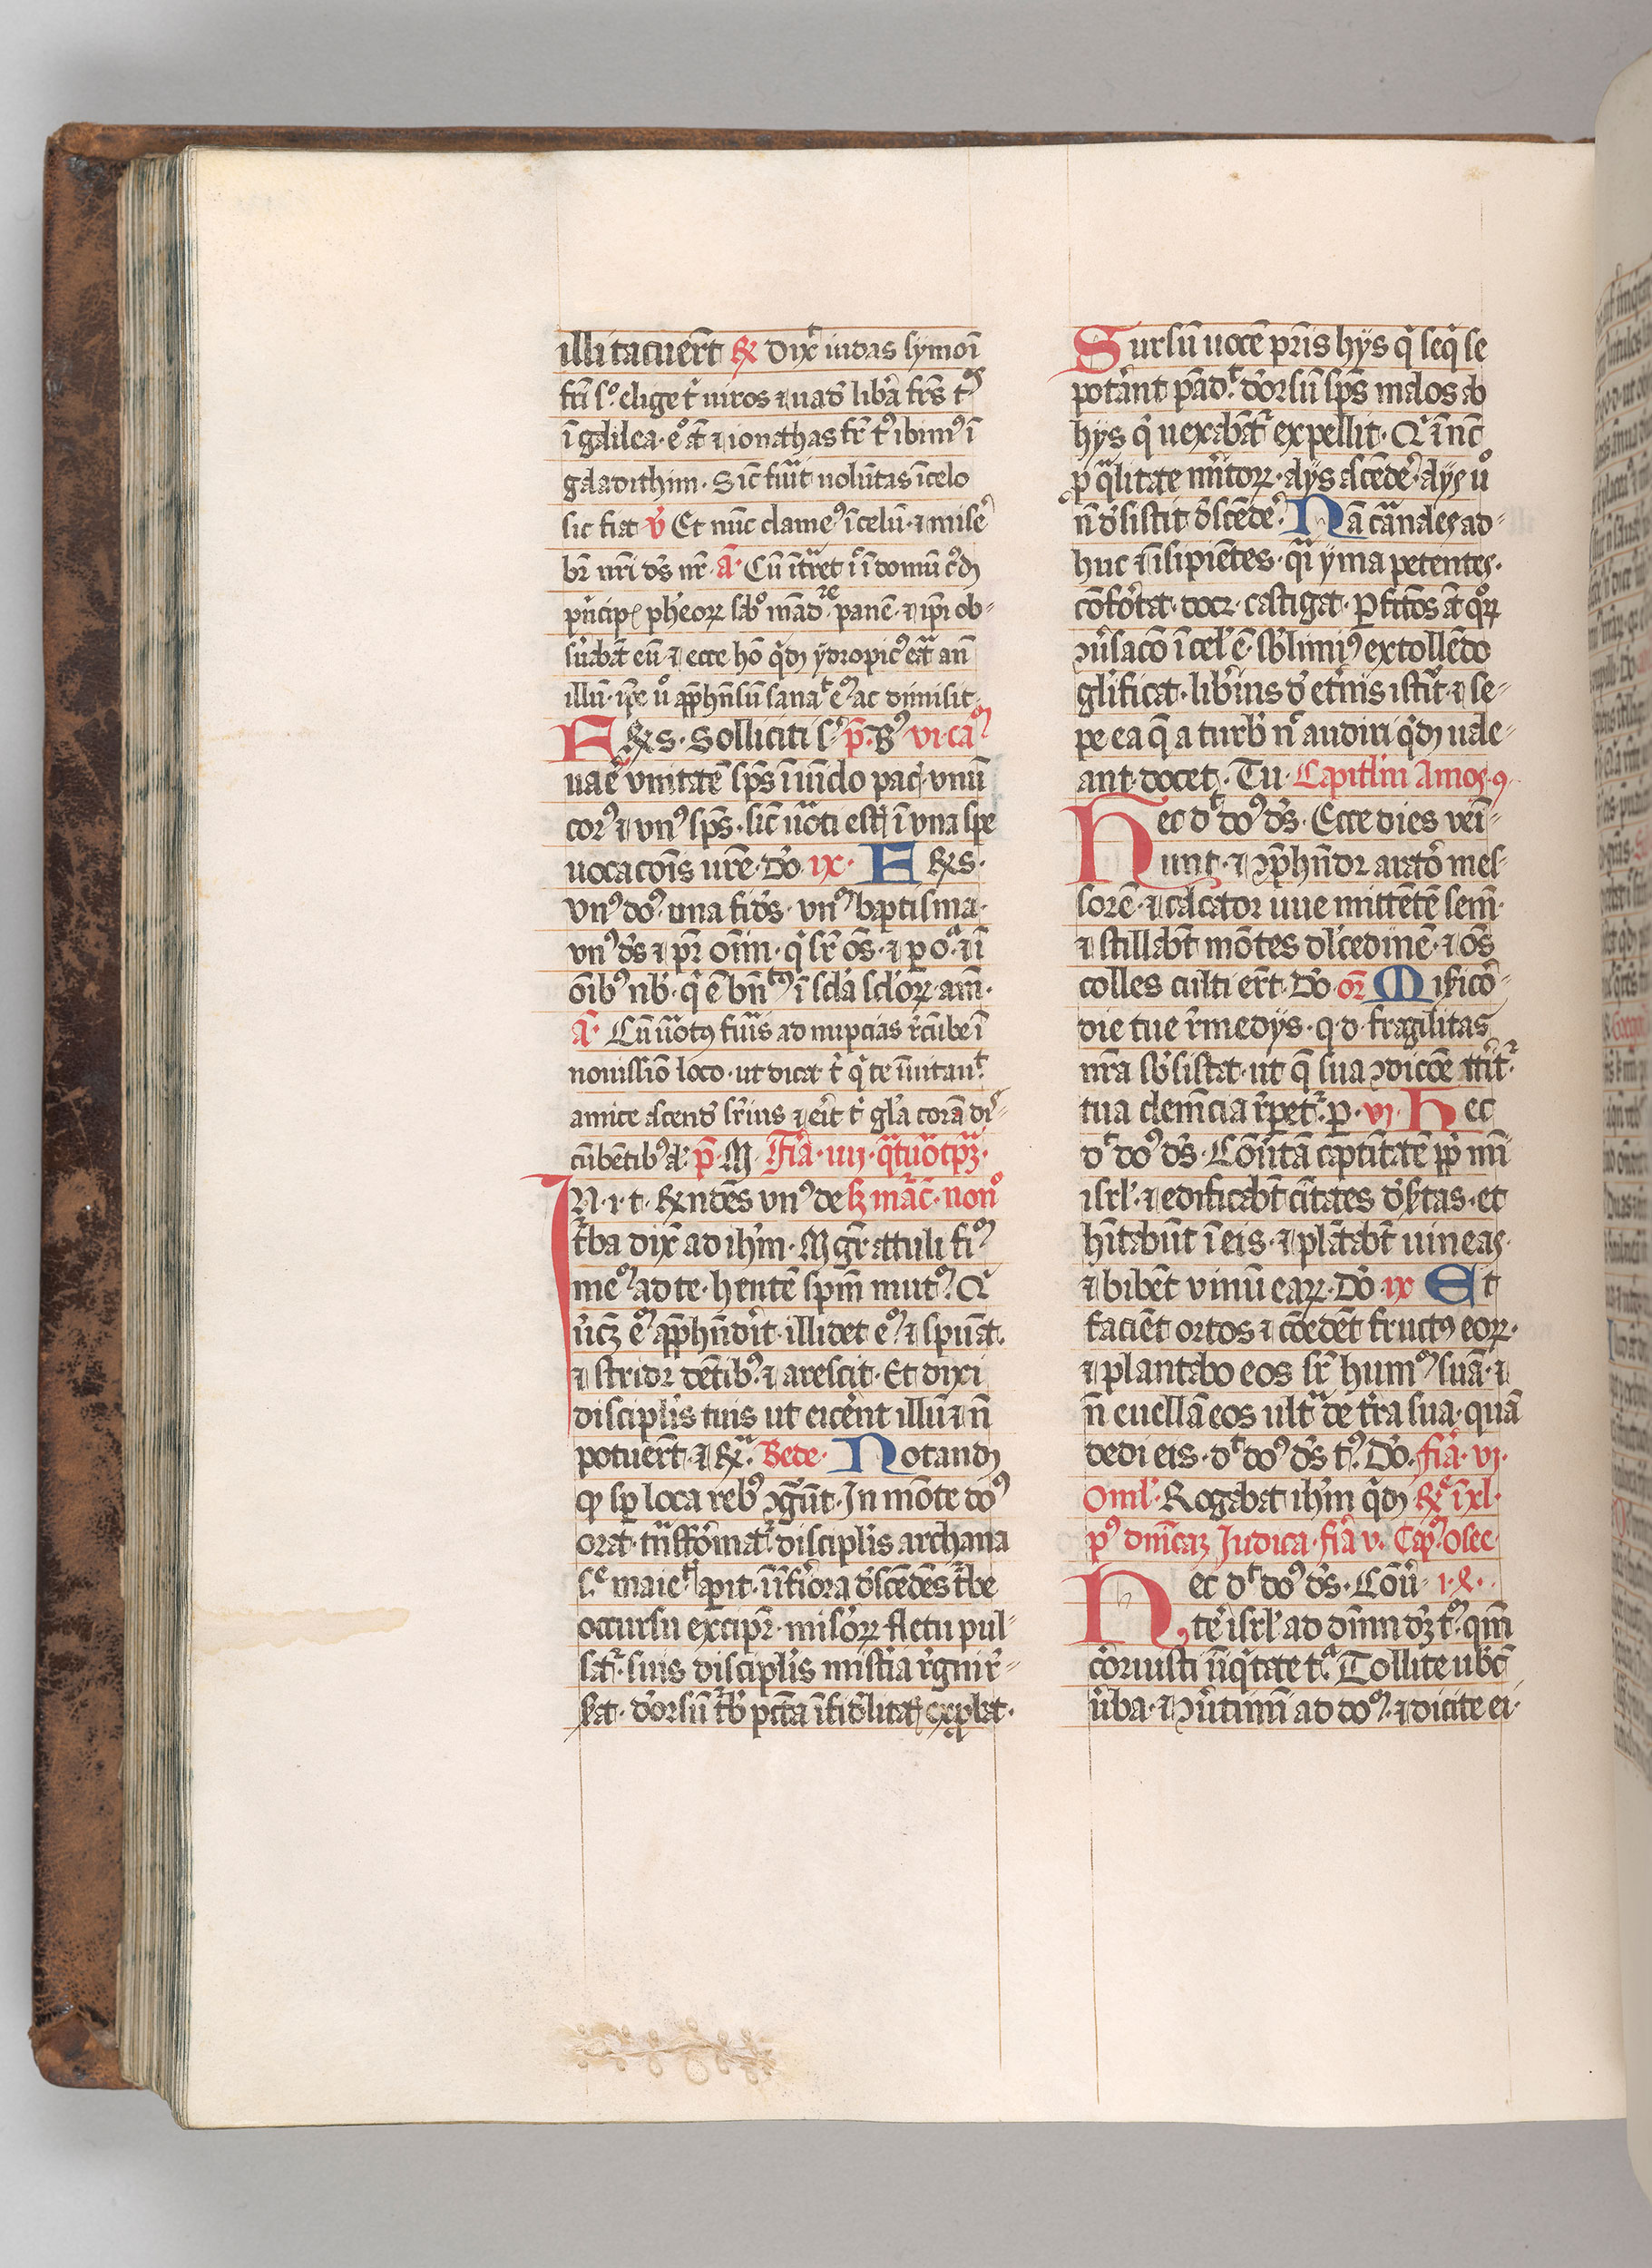 illi tacuer̄t ℟ Dix͛ iudas symoī
fr̄i sº elige t͛ viros ⁊ uad libā frēs tºs
ī galilea. eº at ⁊ ionathas fr̄ tˀ ibimˀ ī
galadithim. Sic fuit volūtas ī celo
sic fiat ℣ Et nūc clamemˀ ī celū ⁊ mise
br̄ nr̄i ds̄ nr̄. a. Cū ītret ī domū
pncip pheoꝝ sabº mād͛re panē ⁊ ipi ob=
suabāt eū ⁊ ecce hō qdȝ ydropicˀ eāt an
illū. ipe uº appħnsū sanaͭ eˀ ac dimisit
FRES. Solliciti sˀ p̄. Bˀ vi. ca
uaē vnitatē sps̄ ī vīclo pacꝭ vnū
corˀ ⁊ vnˀ sps̄. sic uoti estꝭ ī vna spe
uocacōis vr̄e. Dō ix. FRES.
vnˀ doˀ una fids. vnˀ baptisma.
vnˀ ds̄ ⁊ pr̄ oīm. q̄ sr̄ os̄. ⁊ p oa ⁊ ī
oībˀ nb͛. q̄ ē bn̄ ī scla scloꝝ. am̄.
a. Cū uotꝰ fuis ad nupcias rcūbe ī
nouissīo loco. ut dicat t͛ q̄ te īuitauͭ
amice ascend srius ⁊ erit t͛ gl̄a corā dis=
cūbētibˀ aˡ. p̄. M. Fia. iiij. q̄tuotpꝝ.
IN. i. t. Rn̄dēs vnˀ de ſȝ marc̄. nonº
t͛ba dix̄ ad ih̄m. Mgr̄ attuli fiˀ
meˀ ad te. hentē spm̄ mutˀ. Q
uƈȝ eˀ appħndit. illidet eˀ ⁊ spuat.
⁊ stridꝛ dētibˀ. ⁊ arescit. Et dixi
disciplis tuis ut eicēnt illū ⁊ n̄
potuer̄t. ⁊ Rͣ. Bede. Notandȝ
qꝫ sp̄ loca rebˀ ꝯgr̄ūt. In mōte doˀ
orat. tn̄sformatˀ. disciplis archana
sͤ maieͭꝭ apit. īfiora dscēdēs t͛be
occursu excipr̄. misoꝝ fletu pul=
satˀ. suis disciplis mistia rgnir=
sat. dorsū t͛b pctā īfidlitaꝭ exprbat.
Sursū uocē pr̄is hys q̄ seq̄ se
potant pādͭ. dorsū sps̄ malos ab
hys q̄ uexabātˀ expellit. Q ī nc̄
p q̄litate mitoꝝ. alys ascēde. alys uº
n̄ dsistit dscēde. Nā carnales ad=
huc ⁊ īsipiētes. q̄i yma petentes.
cōfortat. docꝫ. castigat. pfitos at qoꝝ
ꝯusacō ī celˡ ē. sblimiˀ extollēdo
glificat. libius d etnis istit. ⁊ se=
pe ea q̄ a turb nˀ audiri qdȝ uale=
ant docet. Tu. Capitlm Amos. 9
Hec dͭ doˀ ds̄. Ecce dies veī=
unt. ⁊ ꝯpħndꝛ aratō mes=
sorē. ⁊ calcator uue mittētē sem̄.
⁊ stillabt mōtes dlcedinē. ⁊ os̄
colles culti ert. Dō. or̄ Misicō=
die tue rmedys. q. d. fragilitas
nr̄a sbsistat. ut q̄ sua ꝯdicōe attitˀ
tua clemcia rpetˀ. p. vi. Hec
dͭ doˀ ds̄. Cōutā captitatē ppl̄i mī
isrl̄. ⁊ edificabt ciuitates dsertas. et
hītabūt ī eis. ⁊ plātabt uineas.
⁊ bibēt vinū eaꝝ. Dō ix Et
faciēt ortos ⁊ cōedēt fructꝰ eoꝝ.
⁊ plantabo eos sr̄ humˀ suā. ⁊
n̄ euellā eos ultͣ de tra sua. quā
dedi eis. dͭ doˀ ds̄ tˀ. Dō. fia. vi.
Oml̄. Rogabat ih̄m q̄dȝ Rͤ ī xl.
pˀ dnīcaȝ Judica. fia v. Cap. Osee
Hec dͭ doˀ ds̄. Cōu i.x..
tē isrl̄ ad dn̄m dȝ tˀ. qm̄
corruisti iniqͭate tͣ. Tollite ubc̄
uba. ⁊ ꝯutimī ad doˀ. ⁊ dicite ei.